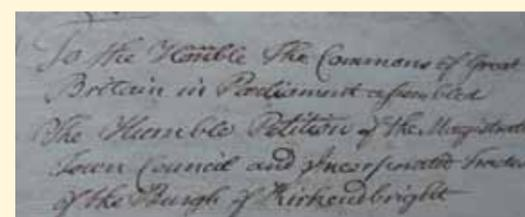 To the Honble The Commons of Great
Britain in Parliament assembled
The Humble Petition of the Magistrat
Town Council and Incorporated Trades
of the Burgh of Kirkcudbright